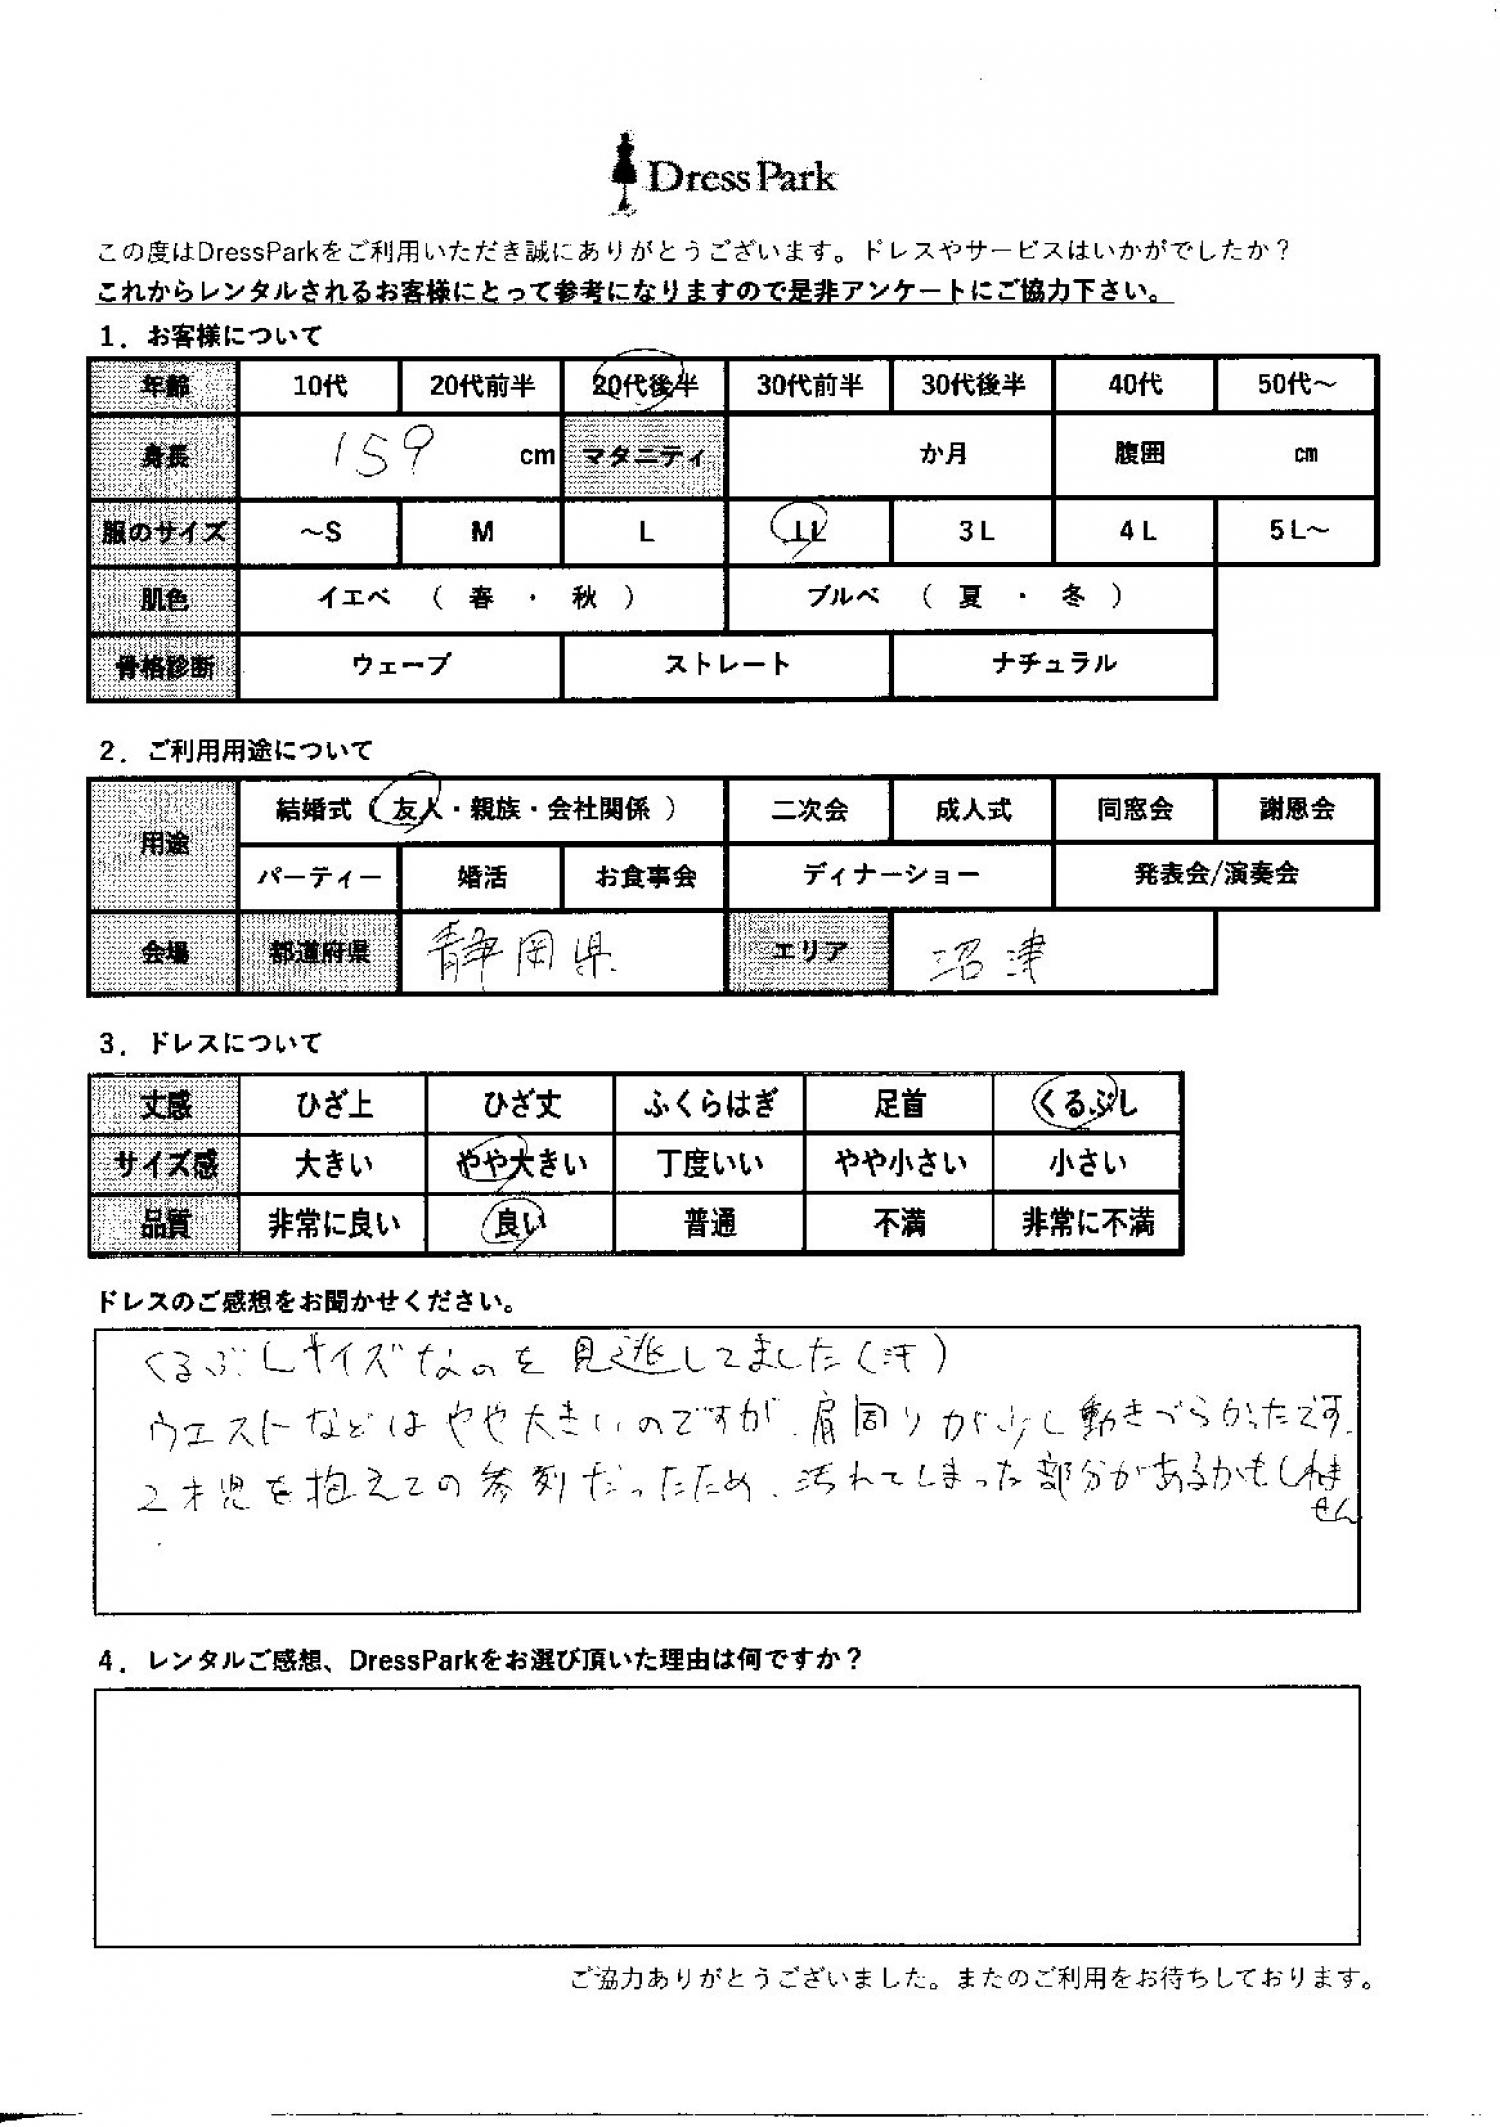 Dress Park
この度はDressParkをご利用いただき誠にありがとうございます。ドレスやサービスはいかがでしたか？
これからレンタルされるお客様にとって参考になりますので是非アンケートにご協力下さい。
1．お客様について
年齢 10代 20代前半 20代後半 30代前半 30代後半 40代 50代～
身長 159 cm マタニティ か月 腹囲 cm
服のサイズ ～S M L LL 3L 4L 5L～
肌色 イエベ （ 春 ・ 秋 ） ブルベ （ 夏 ・ 冬 ）
骨格診断 ウェーブ ストレート ナチュラル
2．ご利用用途について
用途 結婚式（ 友人・親族・会社関係 ） 二次会 成人式 同窓会 謝恩会
パーティー 婚活 お食事会 ディナーショー 発表会/演奏会
会場 都道府県 静岡県 エリア 沼津
3．ドレスについて
丈感 ひざ上 ひざ丈 ふくらはぎ 足首 くるぶし
サイズ感 大きい やや大きい 丁度いい やや小さい 小さい
品質 非常に良い 良い 普通 不満 非常に不満
ドレスのご感想をお聞かせください。
くるぶしサイズなのを見逃してました（汗）
ウエストなどはやや大きいのですが、肩周りが少し動きづらかったです。
2才児を抱えての参列だったため、汚れてしまった部分があるかもしれま
せん
4．レンタルご感想、DressParkをお選び頂いた理由は何ですか？
ご協力ありがとうございました。またのご利用をお待ちしております。